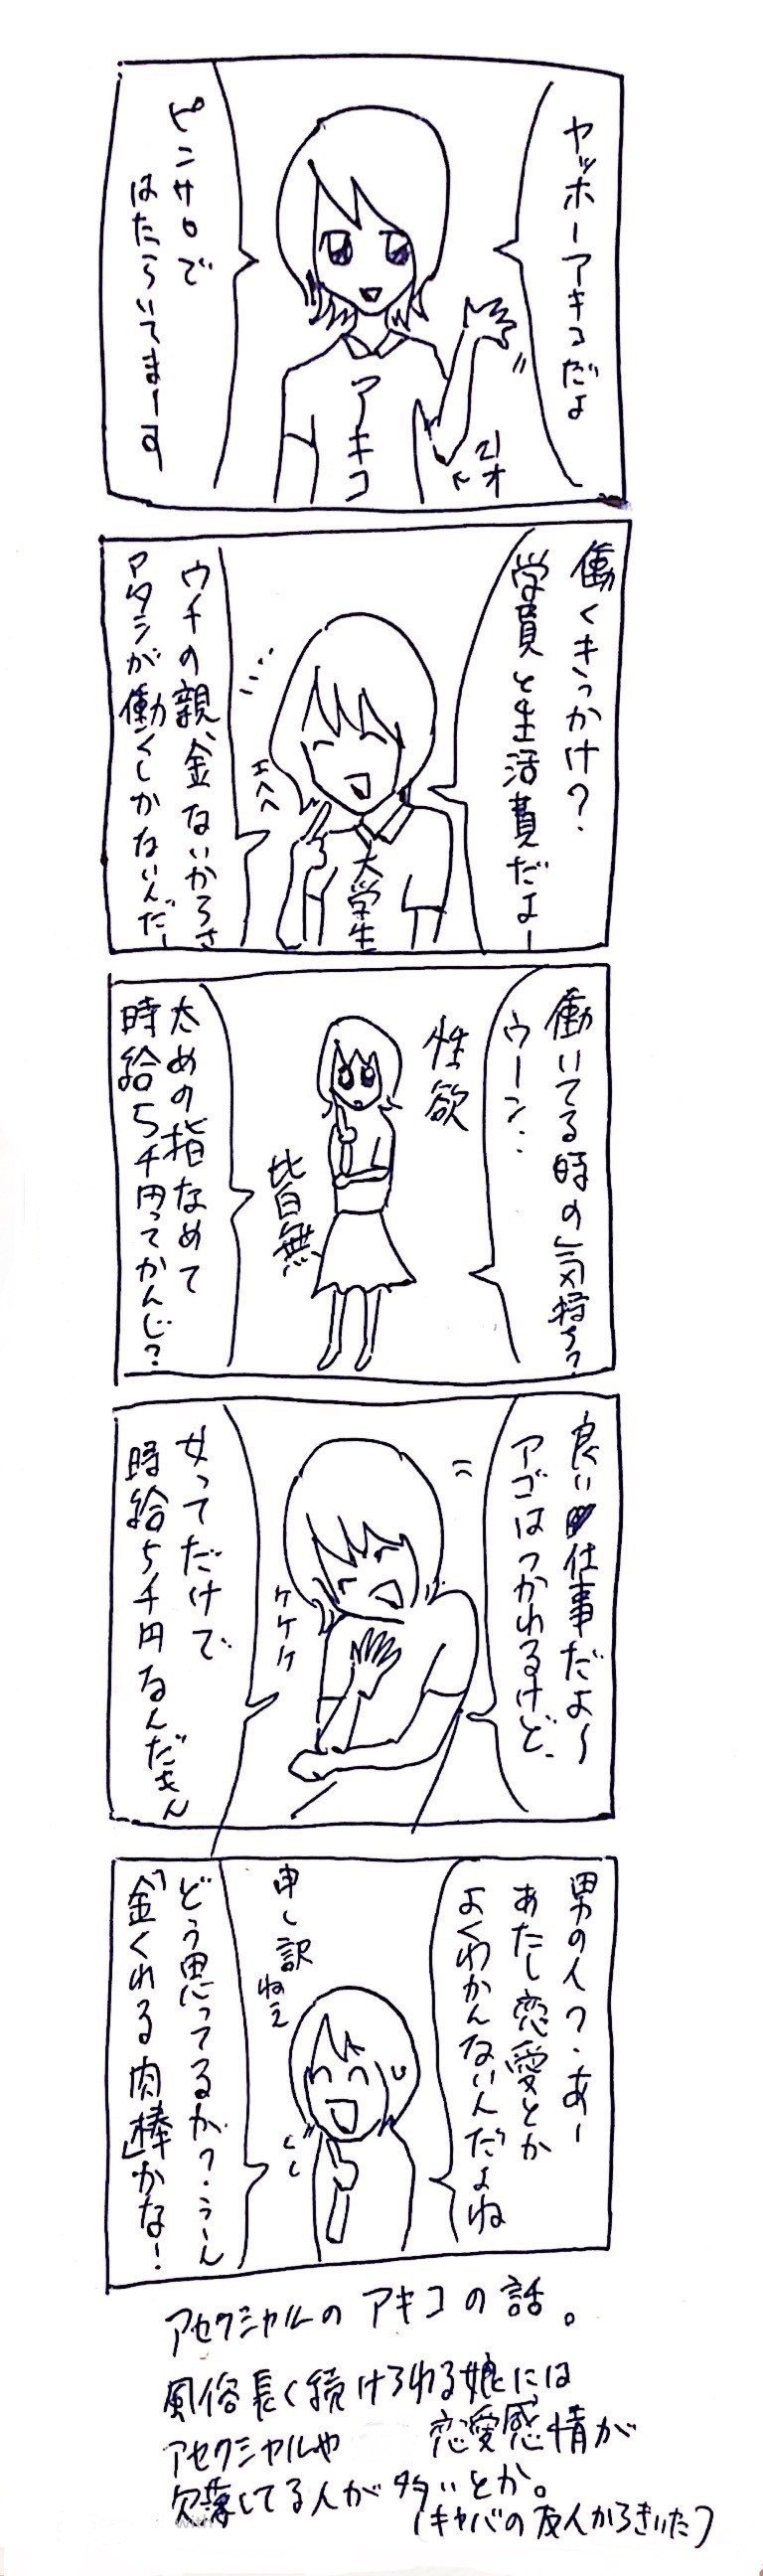 ヤッホーアキコだよ
アキコ
21才
ピンサロで
はたらいてまーす
働くきっかけ?
学費と生活費だよー
エヘヘ
大学生
ウチの親、金ないからさ
アタシが働くしかないんだー
働いてる時の気持ち?
ウーン..
性欲
皆無
太めの指なめて
時給5千円ってかんじ?
良い仕事だよ~
アゴはつかれるけど、
ケケケ
女ってだけで
時給5千円なんだもん
男の人?あー
あたし恋愛とか
よくわかんないんだよね
申し訳
ねえ
ビシ
どう思ってるか?うーん
「金くれる肉棒」かな!
アセクシャルのアキコの話。
風俗長く続けられる娘には
アセクシャルや 恋愛感情が
欠落してる人が多いとか。
(キャバの友人からきいた)